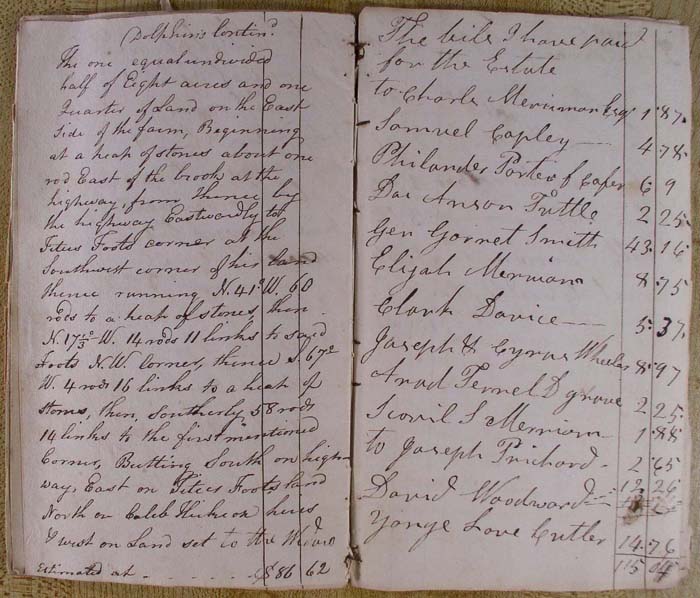 Dolphin's Contin.d
The one equal undivided
half of Eight acres and one
Quarter of Land on the East
Side of the farm, Beginning
at a heap of stones about one
rod East of the brook at the
highway, from thence by
the highway Eastwardly to
Titus Foots corner at the
Southwest corner of his land
thence running N. 41° W. 60
rods to a heap of stones, then
N. 17½° W. 14 rods 11 links to said
Foots N.W. Corner, thence S. 67°
W. 4 rods 16 links to a heap of
stones, then, Southerly 58 rods
14 links to the first mentioned
Corner, Butting South on high-
way, East on Titus Foots land
North on Caleb heirs
& west on Land set to the Widow
Estimated at $86 62
The bils I have paid
for the Estate
to Charles Merriman Esq 1.87.
Samuel Capley 4.78.
Philander Porter 6 9
Dac Anson Tuttle 2 25
Gen Gornet Smith 43.16
Elijah Merriam 8.75
Clark Davice 5.37.
Joseph & Cyrus Wheeler 8.97
Arad Grove 2 25
Scovil S Merriam 1.88
to Joseph Prichard. 2.65
David Woodward 12 26
Yonge Love Cutler 14.76
115 04